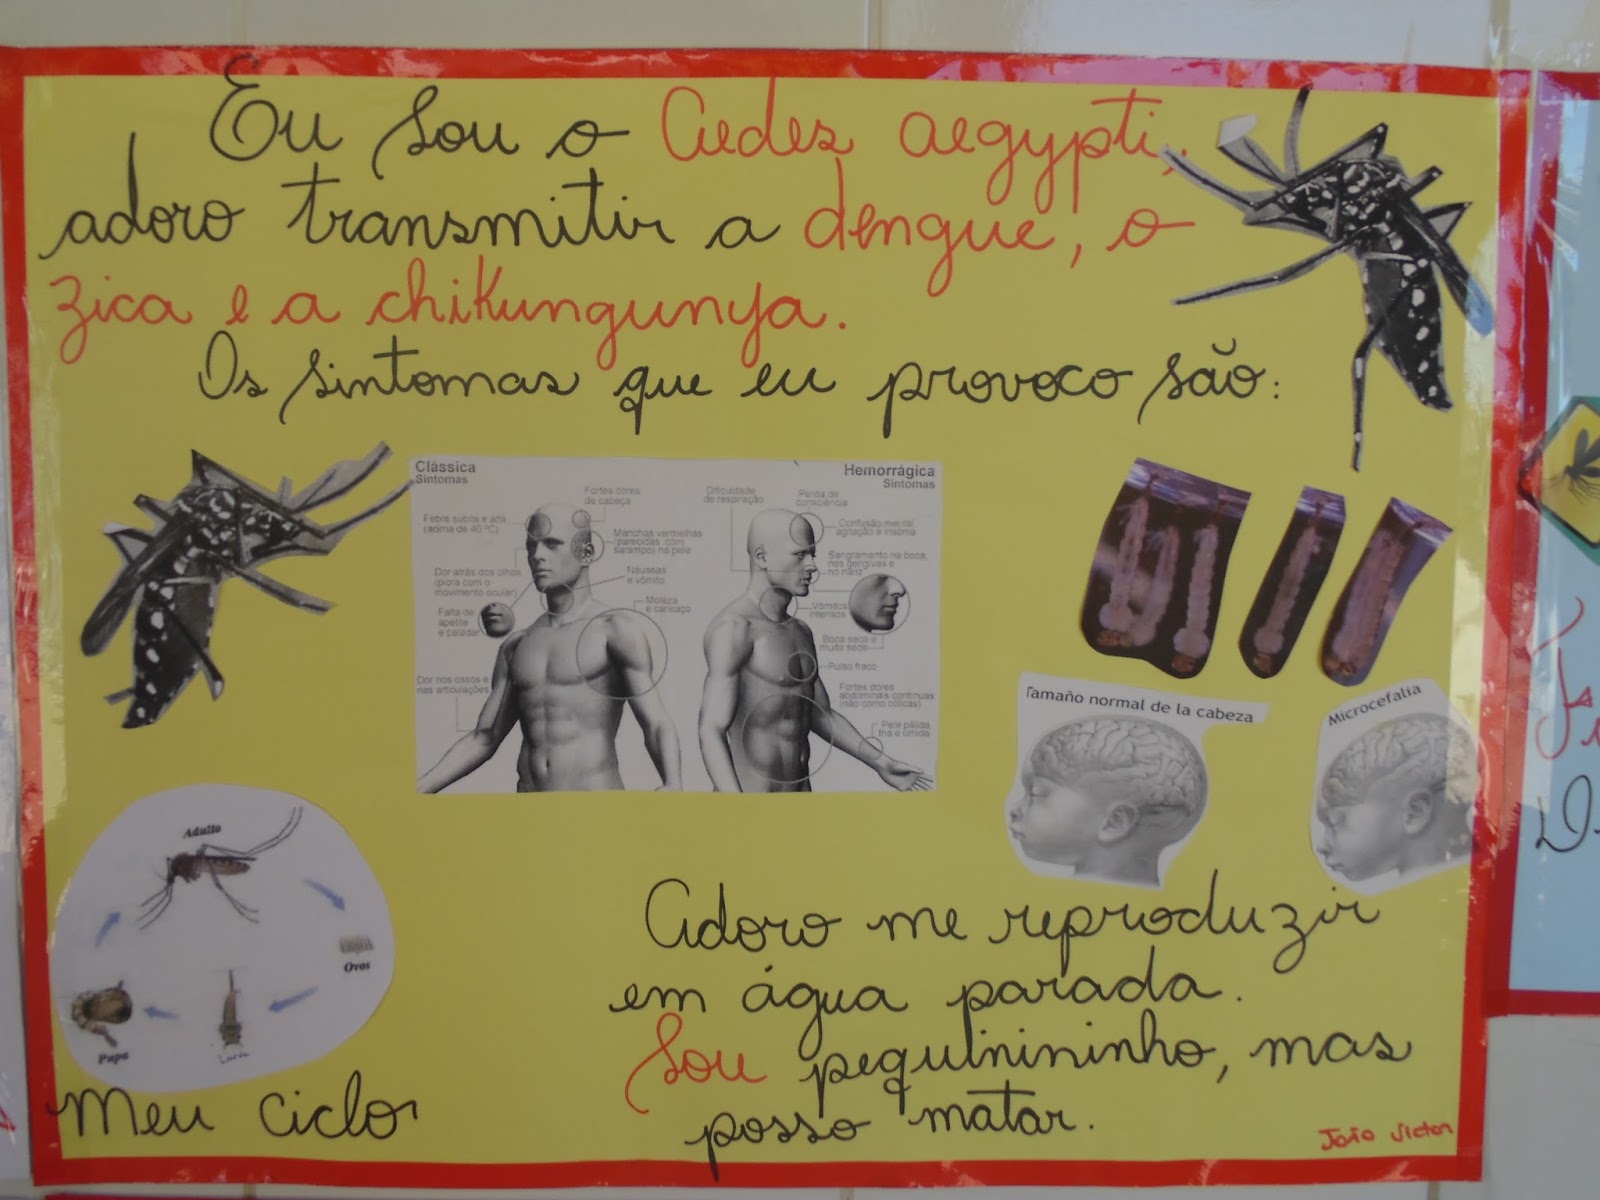 Eu sou o Aedes aegypti,
adoro transmitir a dengue, o
zica e a chikungunya.
Os sintomas que eu provoco são:
Clássica
Sintomas
Fortes dores
de cabeça
Febre súbita e alta
(acima de 40 ºC)
Manchas vermelhas
(parecidas com
sarampo) na pele
Dor atrás dos olhos
(piora com o
movimento ocular)
Náuseas
e vômito
Moleza
e cansaço
Falta de
apetite
e paladar
Dor nos ossos e
nas articulações
Hemorrágica
Sintomas
Dificuldade
de respiração
Perda de
consciência
Confusão mental,
agitação e insônia
Sangramento na boca,
nas gengivas e
no nariz
Vômitos
intensos
Boca seca e
muita sede
Pulso fraco
Fortes dores
abdominais contínuas
(não como cólicas)
Pele pálida,
fria e úmida
Tamaño normal de la cabeza
Microcefalia
Adulto
Ovos
Larva
Pupa
Meu ciclo
Adoro me reproduzir
em água parada.
Sou pequinininho, mas
posso matar.
João Victor